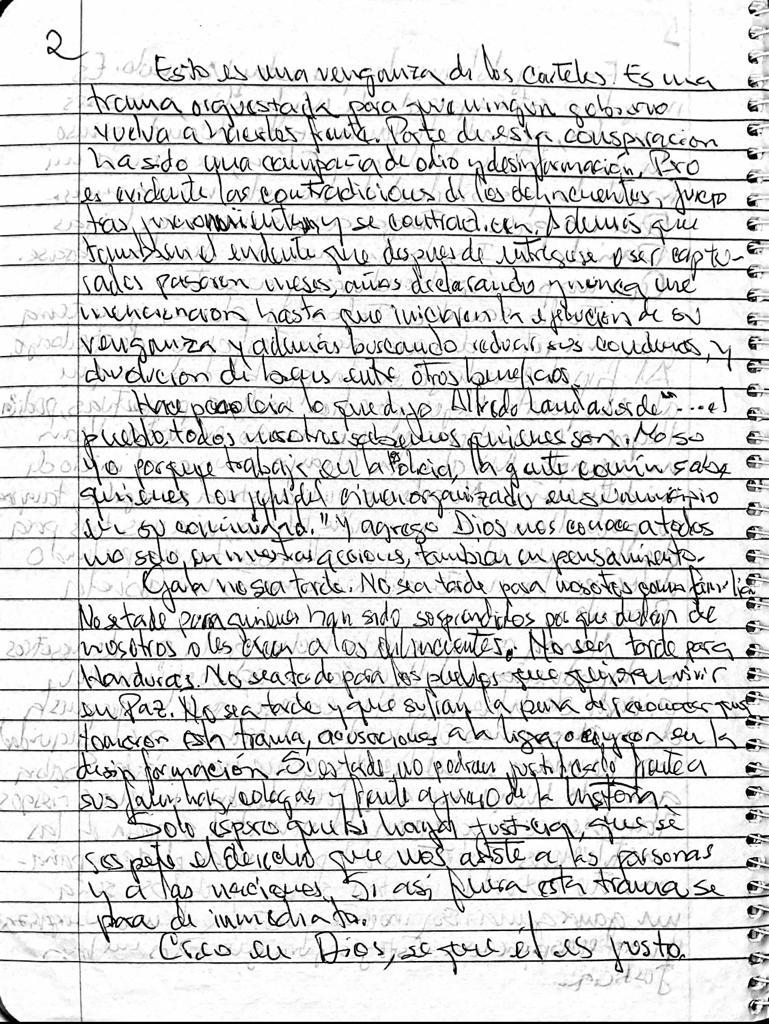 2
Esto es una venganza de los carteles. Es una
trama orquestada para que ningún gobierno
vuelva a hacerles frente. Parte de esta conspiración
ha sido una campaña de odio y desinformación. Pero
es evidente las contradiciones de los delincuentes, juran
tras juramentos y se contradicen. Además que
también el evidente que despues de entregarse o ser captu-
rados pasaron meses, años declarando y nunca me
mencionaron hasta que iniciaron la ejecución de su
venganza y además buscando reducir sus condenas, y
devolución de bienes entre otros beneficios.
Hace poco leía lo que dijo Alfredo Landaverde "...el
pueblo, todos nosotros sabemos quienes son. No so
yo porque trabaje en la Policia, la gente común sabe
quienes los jefes del crimen organizado en su municipio
en su comunidad." Y agrego Dios nos conoce a todos
no solo en nuestras acciones, tambien en pensamiento.
Ojala no sea tarde. No sea tarde para nosotros como familia
No se tarde para quienes han sido sosprendidos por que dudan de
nosotros o les creen a los delincuentes. No sea tarde para
Honduras. No sea tarde para los pueblos que quieran vivir
en Paz. No sea tarde y que sufran la pena de reconocer que
tomaron esta trama, acusaciones a la ligera o cayeron en la
desinformación. Si es tarde no podran justificarlo frente a
sus familias, colegas y frente a juicio de la historia.
Solo espero que haya justicia, que se
respete el derecho que nos asiste a las personas
y a las naciones. Si asi fuera esta trama se
para de inmediato.
Creo en Dios, se que él es justo.